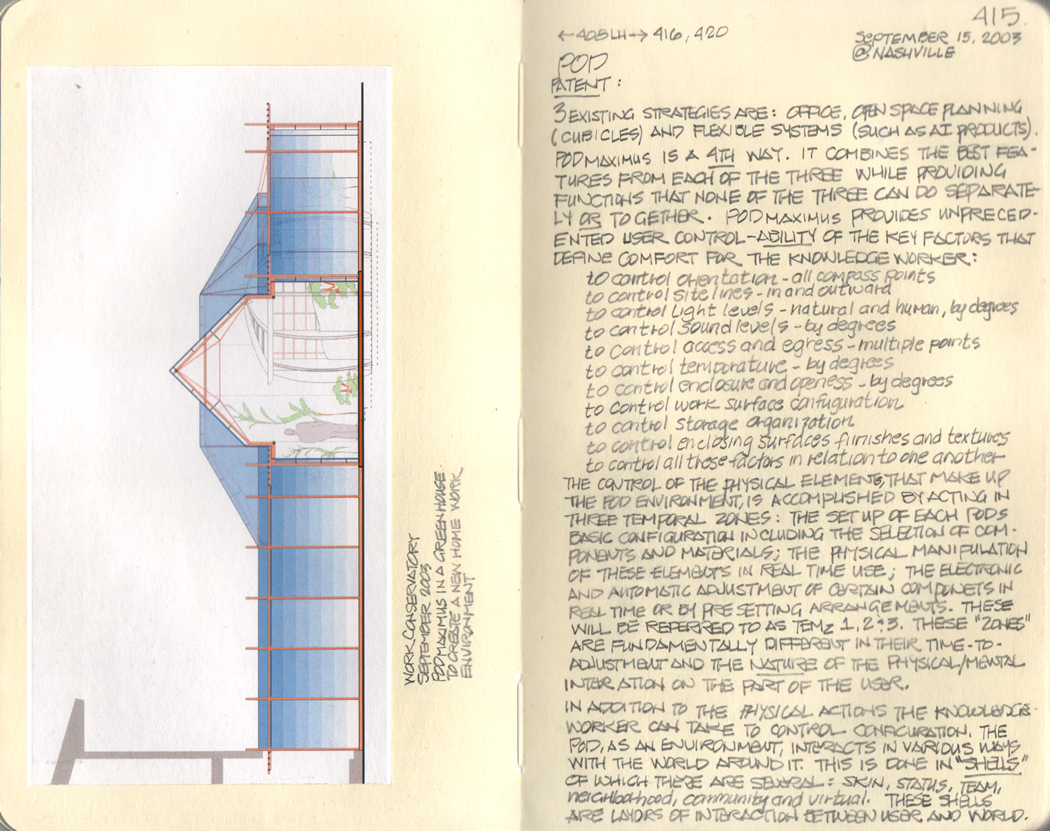 WORK CONSERVATORY
SEPTEMBER 2003
POD MAXIMUS IN A GREENHOUSE
TO CREATE A NEW HOME WORK
ENVIRONMENT
415.
←408LH→ 416, 420
SEPTEMBER 15, 2003
@NASHVILLE
POD
PATENT:
3 EXISTING STRATEGIES ARE: OFFICE, OPEN SPACE PLANNING
(CUBICLES) AND FLEXIBLE SYSTEMS (SUCH AS AI PRODUCTS).
POD MAXIMUS IS A 4TH WAY. IT COMBINES THE BEST FEA-
TURES FROM EACH OF THE THREE WHILE PROVIDING
FUNCTIONS THAT NONE OF THE THREE CAN DO SEPARATE-
LY OR TOGETHER. POD MAXIMUS PROVIDES UNPRECED-
ENTED USER CONTROL-ABILITY OF THE KEY FACTORS THAT
DEFINE COMFORT FOR THE KNOWLEDGE WORKER:
to control orientation - all compass points
to control site lines - in and outward
to control light levels - natural and human, by degrees
to control sound levels - by degrees
to control access and egress - multiple points
to control temperature - by degrees
to control enclosure and openess - by degrees
to control work surface confuguration
to control storage organization
to control enclosing surfaces firnishes and textures
to control all these factors in relation to one another
THE CONTROL OF THE PHYSICAL ELEMENTS, THAT MAKE UP
THE POD ENVIRONMENT, IS ACCOMPLISHED BY ACTING IN
THREE TEMPORAL ZONES: THE SET UP OF EACH PODS
BASIC CONFIGURATION INCLUDING THE SELECTION OF COM-
PONENTS AND MATERIALS; THE PHYSICAL MANIPULATION
OF THESE ELEMENTS IN REAL TIME USE; THE ELECTRONIC
AND AUTOMATIC ADJUSTMENT OF CERTAIN COMPONETS IN
REAL TIME OR BY PRE SETTING ARRANGEMENTS. THESE
WILL BE REFERRED TO AS TEMZ 1, 2 & 3. THESE "ZONES"
ARE FUNDAMENTALLY DIFFERENT IN THEIR TIME-TO-
ADJUSTMENT AND THE NATURE OF THE PHYSICAL/MENTAL
INTERATION ON THE PART OF THE USER.
IN ADDITION TO THE PHYSICAL ACTIONS THE KNOWLEDGE-
WORKER CAN TAKE TO CONTROL CONFIGURATION, THE
POD, AS AN ENVIRONMENT, INTERACTS IN VARIOUS WAYS
WITH THE WORLD AROUND IT. THIS IS DONE IN "SHELLS"
OF WHICH THERE ARE SEVERAL: SKIN, STATUS, TEAM,
neighborhood, community and virtual. THESE SHELLS
ARE LAYORS OF INTERACTION BETWEEN USER AND WORLD.